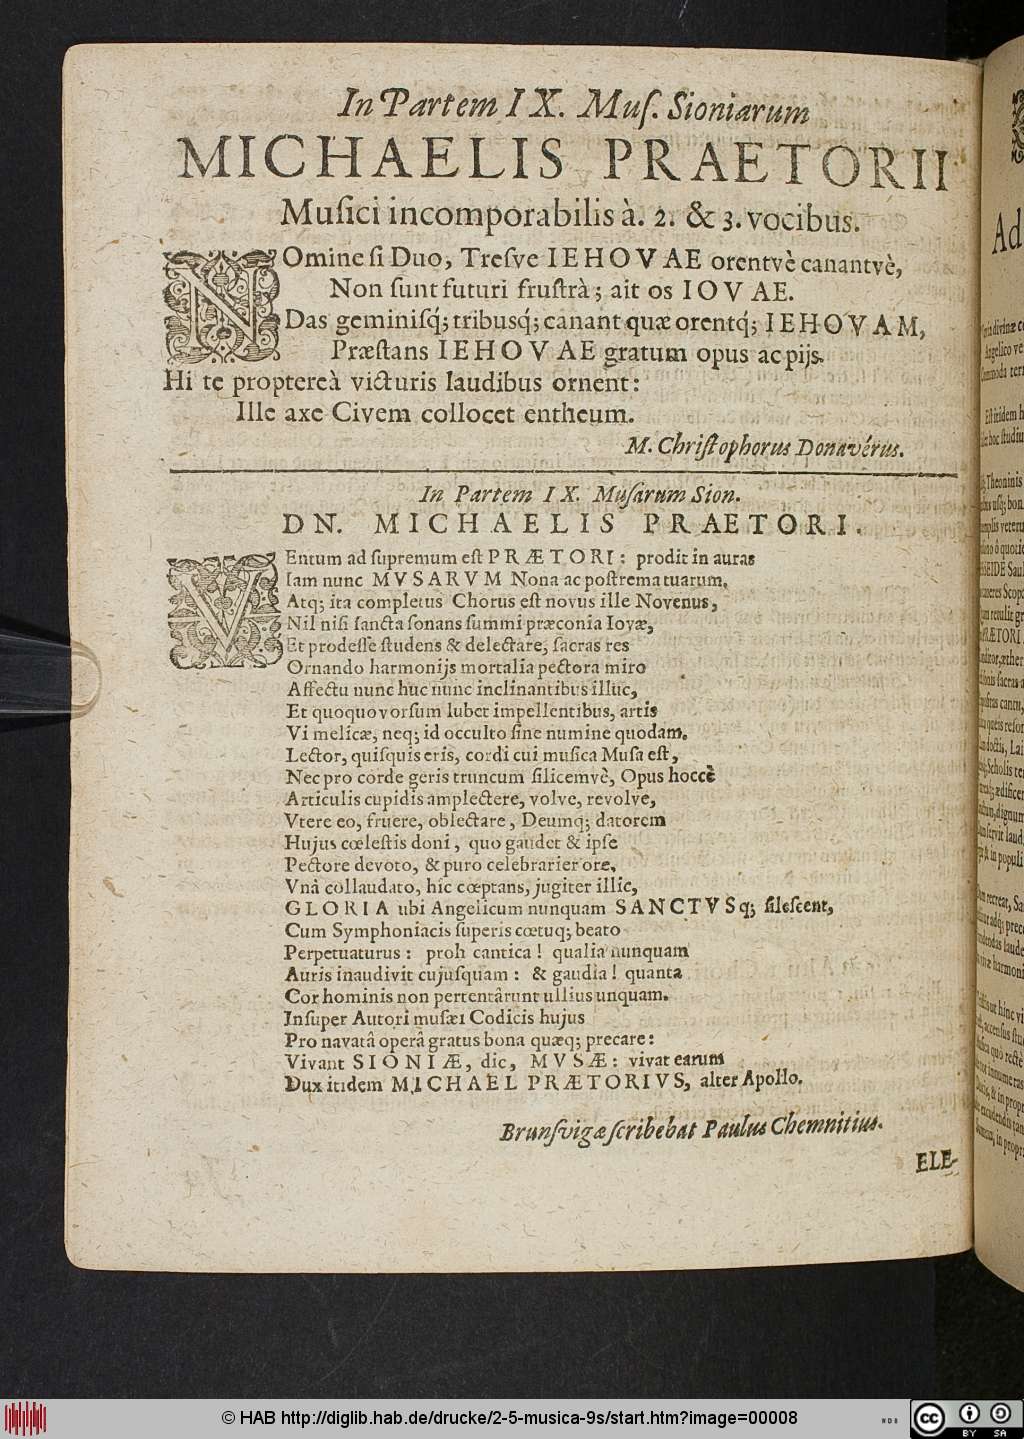 In Partem IX. Muſ. Sioniarum
MICHAELIS PRAETORII
Muſici incomporabilis à. 2. & 3. vocibus.
NOmine ſi Duo, Treſve IEHOVAE orentvè canantvè,
Non ſunt futuri fruſtrà; ait os IOVAE.
Das geminiſq́; tribusq́; canant quæ orentq́; IEHOVAM,
Præſtans IEHOVAE gratum opus ac pijs.
Hi te proptereà victuris laudibus ornent:
Ille axe Civem collocet entheum.
M. Chriſtophorus Donavérus.
In Partem IX. Muſarum Sion.
DN. MICHAELIS PRAETORI.
VEntum ad ſupremum eſt PRÆTORI: prodit in auras
Iam nunc MVSARVM Nona ac poſtrema tuarum,
Atq; ita completus Chorus eſt novus ille Novenus,
Nil niſi ſancta ſonans ſummi præconia Iovæ,
Et prodeſſe ſtudens & delectare; ſacras res
Ornando harmonijs mortalia pectora miro
Affectu nunc huc nunc inclinantibus illuc,
Et quoquovorſum lubet impellentibus, artis
Vi melicæ, neq; id occulto ſine numine quodam.
Lector, quiſquis eris, cordi cui muſica Muſa eſt,
Nec pro corde geris truncum ſilicemvè, Opus hoccè
Articulis cupidis amplectere, volve, revolve,
Vtere eo, fruere, oblectare, Deumq; datorem
Hujus cœleſtis doni, quo gaudet & ipſe
Pectore devoto, & puro celebrarier ore,
Vnà collaudato, hic cœptans, jugiter illic,
GLORIA ubi Angelicum nunquam SANCTVSq; ſileſcent,
Cum Symphoniacis ſuperis cœtuq; beato
Perpetuaturus: proh cantica! qualia nunquam
Auris inaudivit cujuſquam: & gaudia! quanta
Cor hominis non pertentârunt ullius unquam.
Inſuper Autori muſæi Codicis hujus
Pro navatâ operâ gratus bona quæq; precare:
Vivant SIONIÆ, dic, MVSÆ: vivat earum
Dux itidem MICHAEL PRÆTORIVS, alter Apollo.
Brunſvigæ ſcribebat Paulus Chemnitius.
ELE-
Ad
© HAB http://diglib.hab.de/drucke/2-5-musica-9s/start.htm?image=00008
cc BY SA